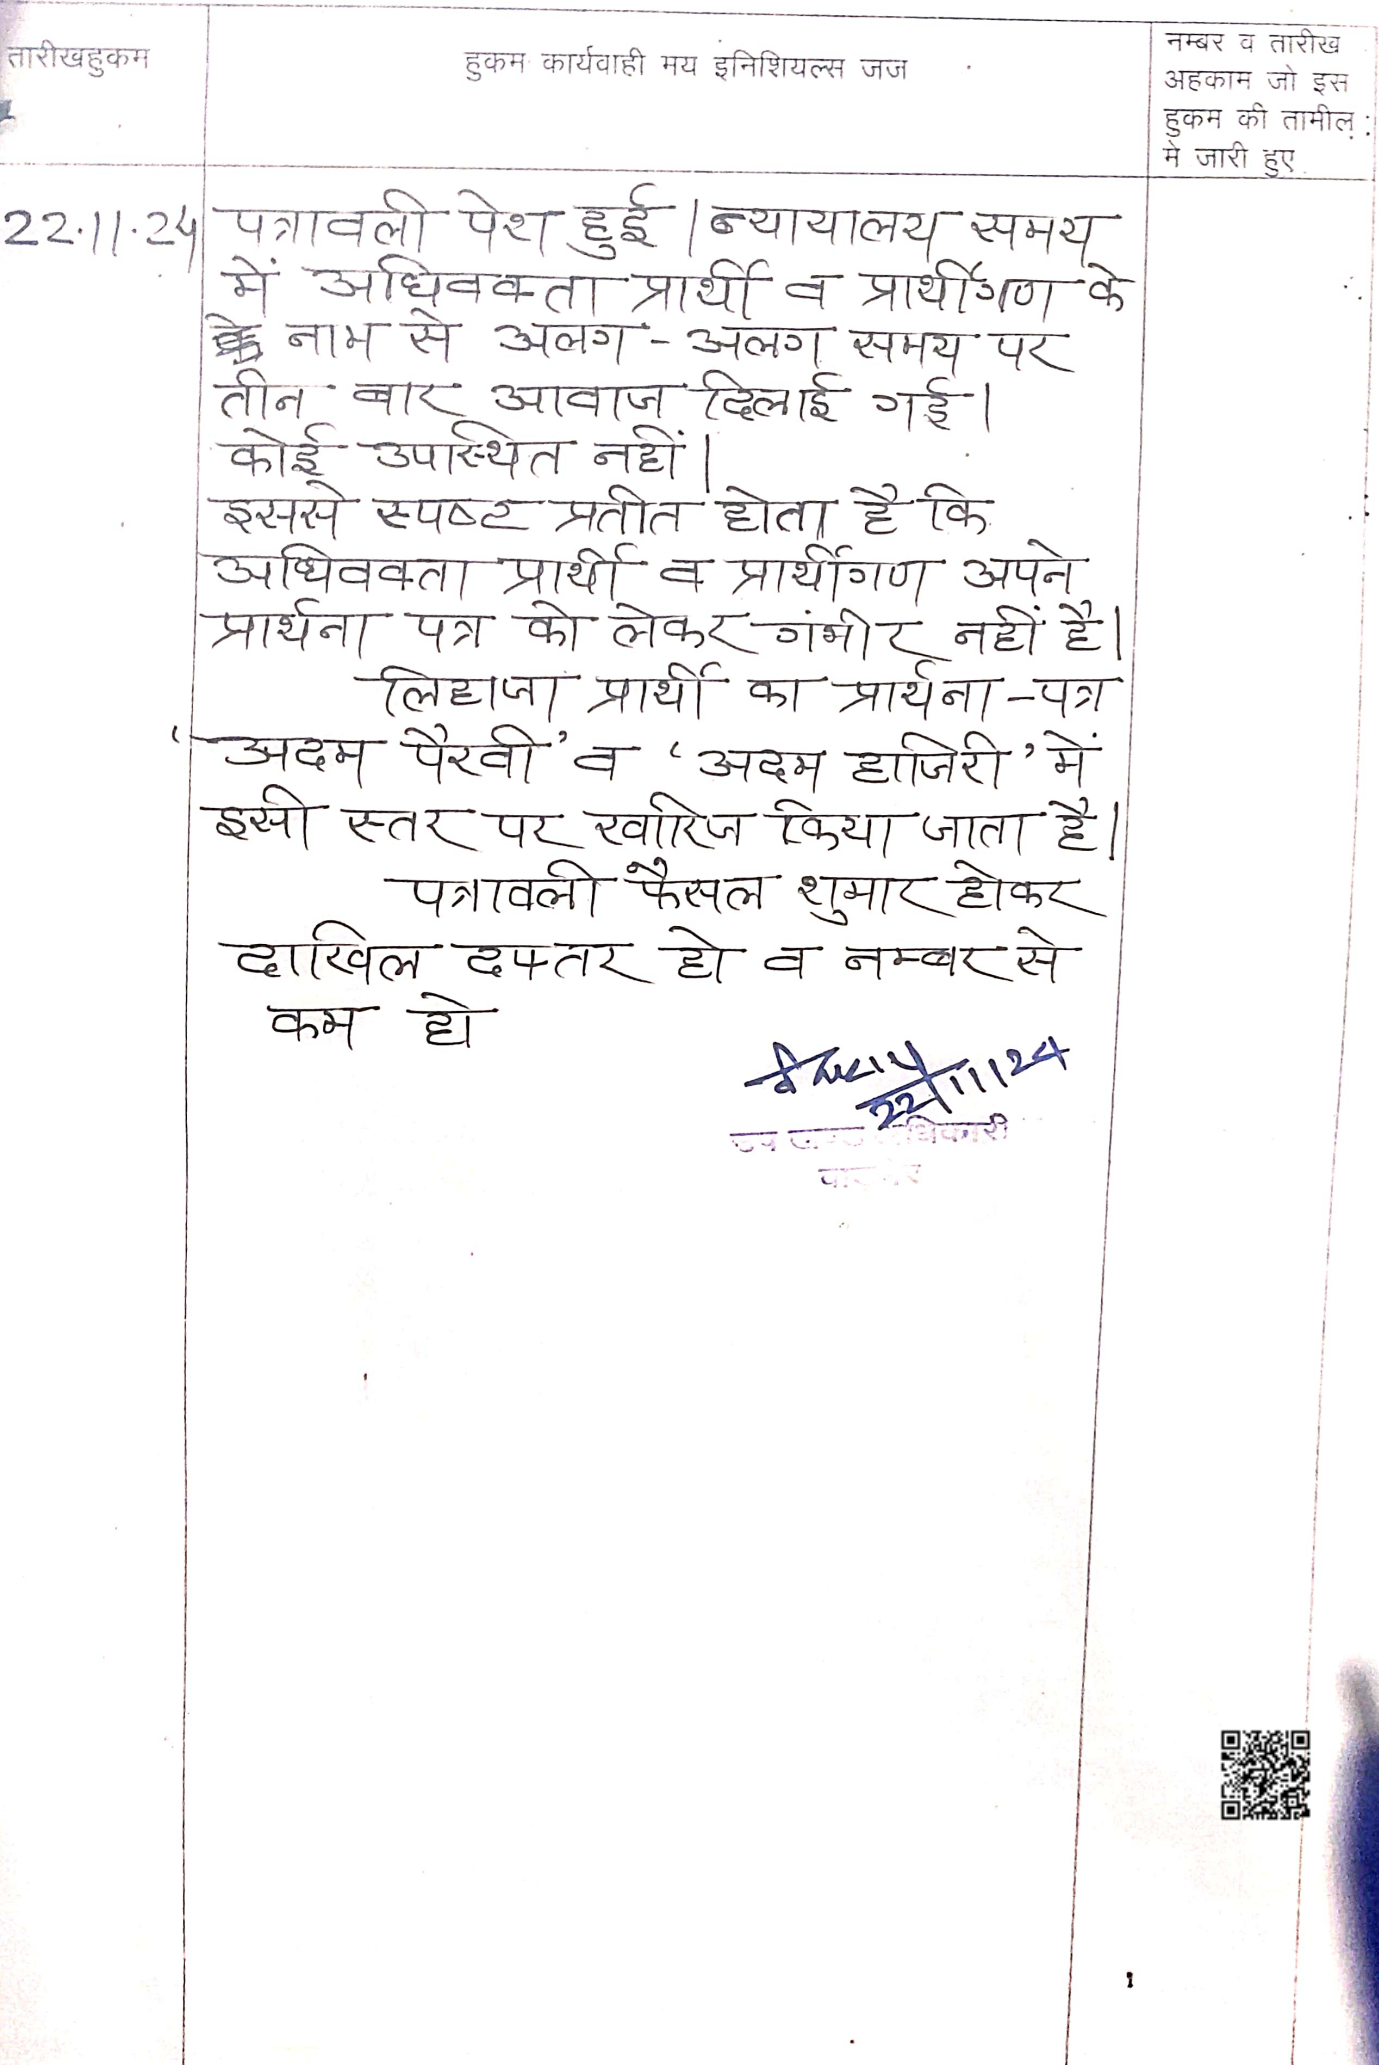 तारीखहुकम
हुकम कार्यवाही मय इनिशियल्स जज
नम्बर व तारीख
अहकाम जो इस
हुकम की तामील
मे जारी हुए
22.11.24
पत्रावली पेश हुई। न्यायालय समय
में अधिवक्ता प्रार्थी व प्रार्थीगण के
नाम से अलग-अलग समय पर
तीन बार आवाज दिलाई गई।
कोई उपस्थित नहीं।
इससे स्पष्ट प्रतीत होता है कि
अधिवक्ता प्रार्थी व प्रार्थीगण अपने
प्रार्थना पत्र को लेकर गंभीर नहीं है।
लिहाजा प्रार्थी का प्रार्थना-पत्र
'अदम पैरवी' व 'अदम हाजिरी' में
इसी स्तर पर खारिज किया जाता है।
पत्रावली फैसल शुमार होकर
दाखिल दफ्तर हो व नम्बर से
कम हो
22/11/24
उप खण्ड अधिकारी
1